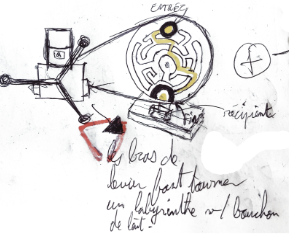 ENTRÉE
récipients
les bras de
levier font tourner
un labyrinthe v/ bouchon
de lait.